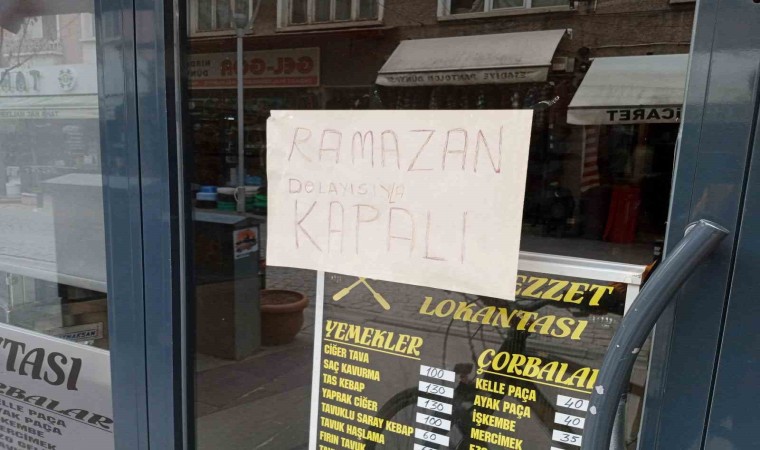 GEL-GÖR
TİCARET
RAMAZAN
DOLAYISIYA
KAPALI
EZZET
LOKANTASI
YEMEKLER
CİĞER TAVA 100
SAÇ KAVURMA 130
TAS KEBAP 130
YAPRAK CİĞER 100
TAVUKLU SARAY KEBAP 60
TAVUK HAŞLAMA
FIRIN TAVUK
ÇORBALAR
KELLE PAÇA 40
AYAK PAÇA 40
İŞKEMBE 35
MERCİMEK
NTASI
ORBALAR
KELLE PAÇA
AYAK PAÇA
İŞKEMBE
MERCİMEK